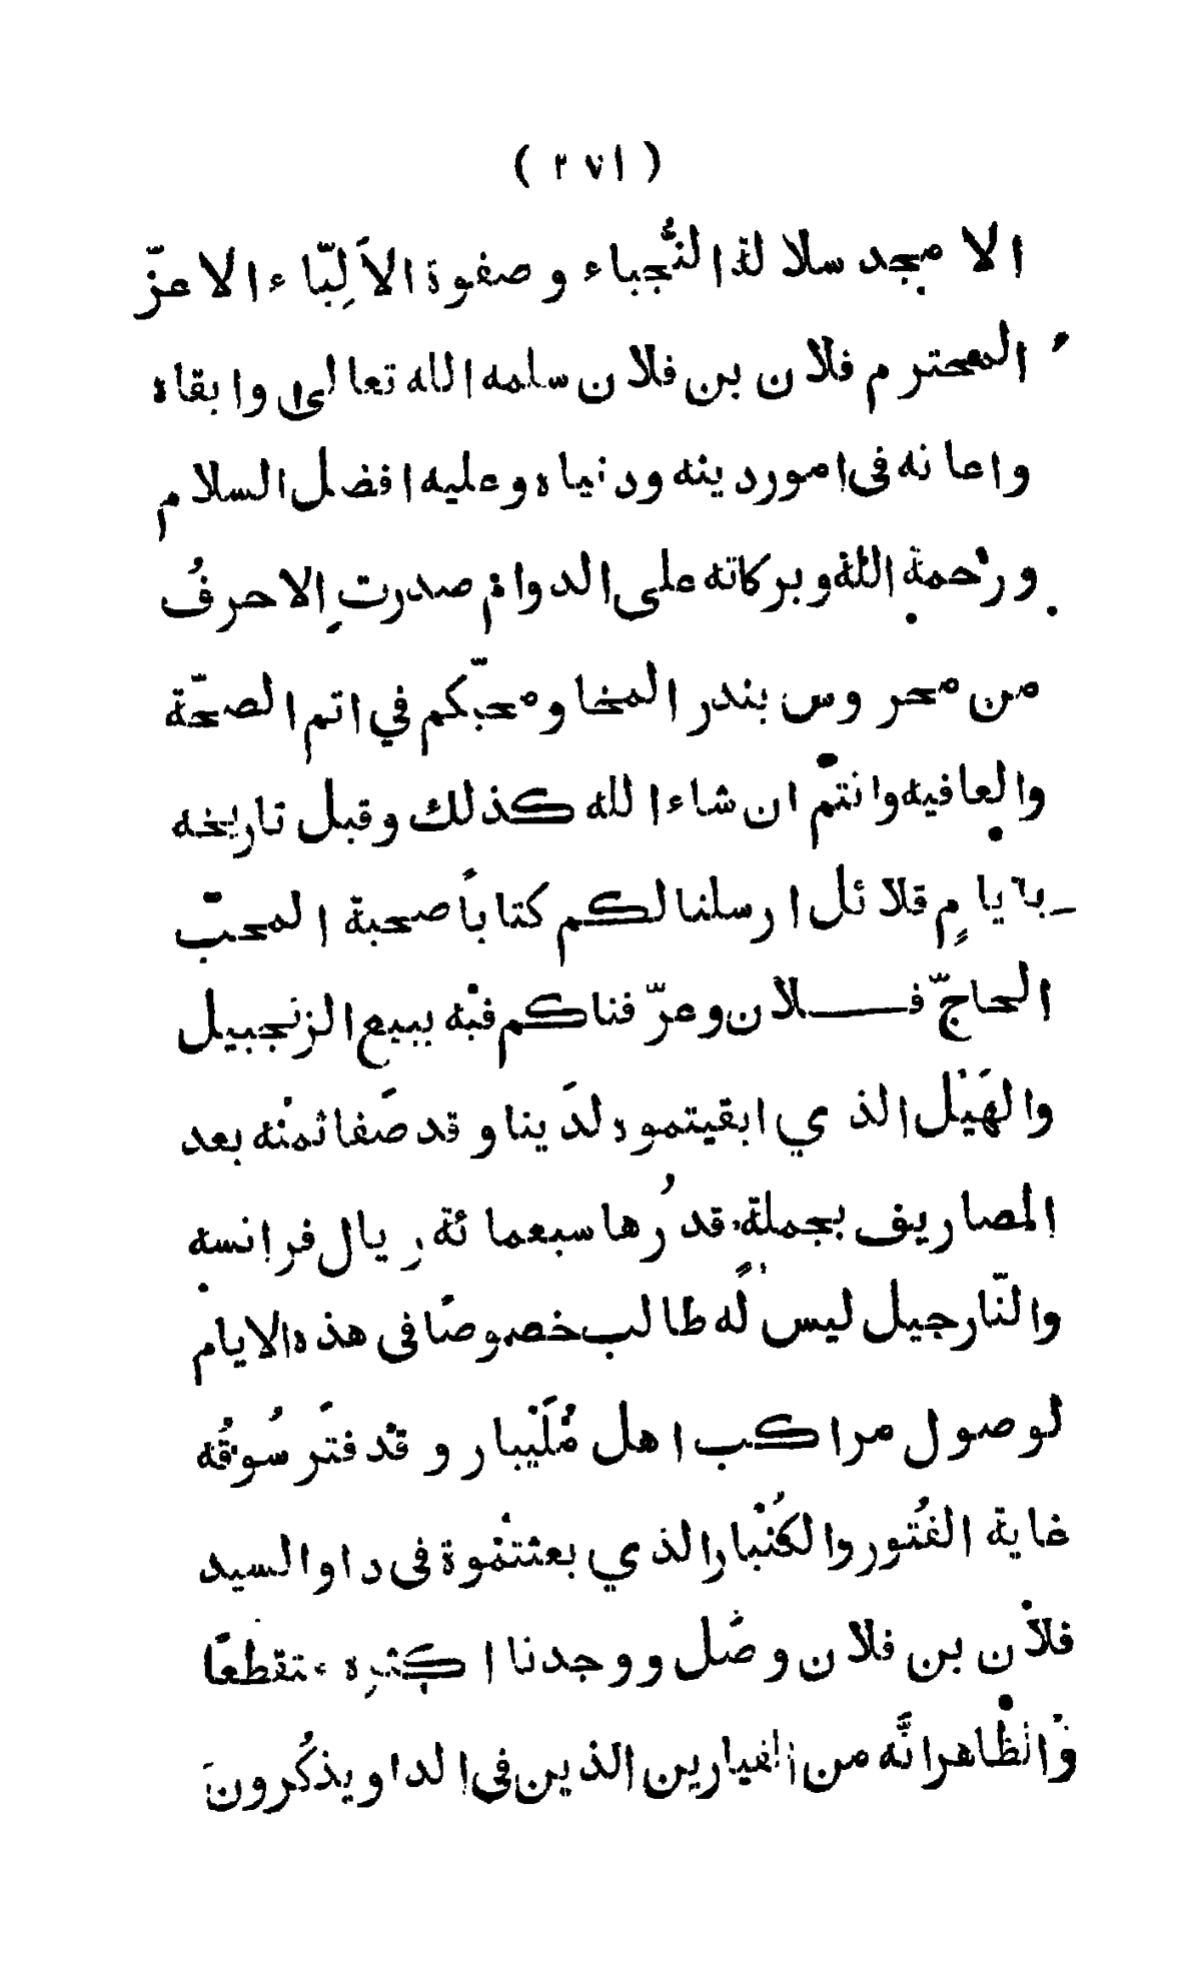 ( ٢٧١ )
الامجد سلالة النُّجباء وصفوة الاَلِبّاء الاعزّ
المحترم فلان بن فلان سلمه الله تعالى وابقاه
واعانه فى امور دينه ودنياه وعليه افضل السلام
ورحمة الله وبركاته على الدوام صدرت الاحرفُ
من محروس بندر المخا ومحبّكم في اتم الصحّة
والعافيه وانتم ان شاء الله كذلك وقبل تاريخه
بايامٍ قلائل ارسلنا لكم كتاباً صحبة المحبّ
الحاجّ فلان وعرّفناكم فيه ببيع الزنجبيل
والهَيْل الذي ابقيتموه لدَينا وقد صَفا ثمنْه بعد
المصاريف بجملةٍ قدرُها سبعمائة ريال فرانسه
والنّارجيل ليس له طالب خصوصًا فى هذه الايام
لوصول مراكب اهل مُلَيْبار وقد فتَر سُوقُه
غاية الفُتور والكُنْبار الذي بعثتموة فى داو السيد
فلان بن فلان وصَل ووجدنا اكثره متقطعًا
والظاهر انَّه من الفيارين الذين فى الداو يذكُرونَ